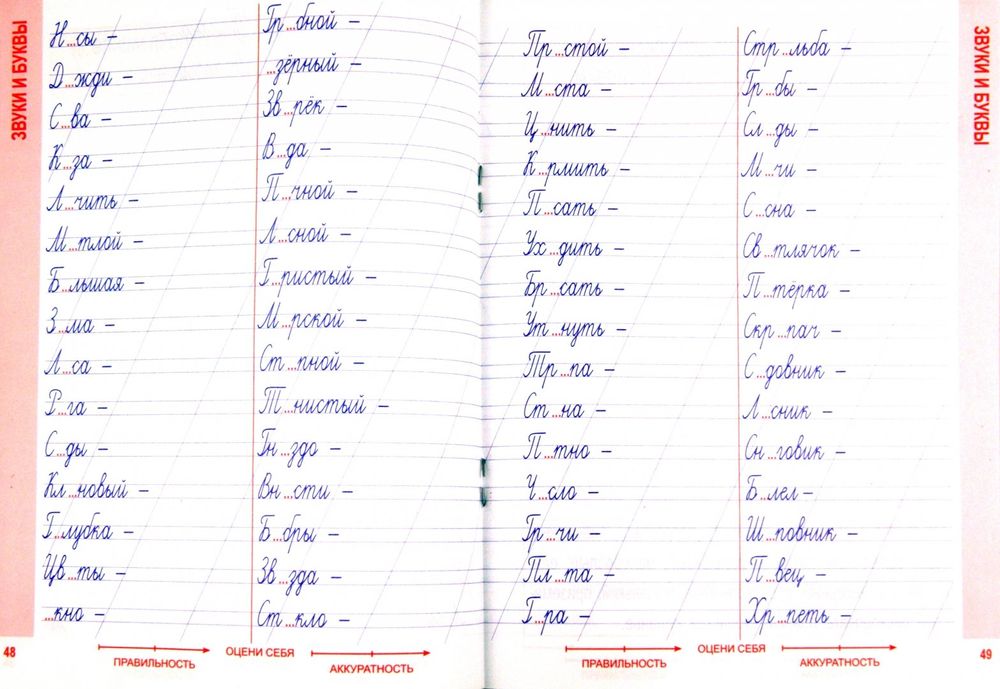 ЗВУКИ И БУКВЫ
Н...сы –
Д...жди –
С...ва –
К...за –
Л...чить –
М...тлой –
Б...льшая –
З...ма –
Л...са –
Р...га –
С...ды –
Кл...новый –
Г...лубка –
Цв...ты –
...кно –
Гр...бной –
...зёрный –
Зв...рёк –
В...да –
П...чной –
Л...сной –
Г...ристый –
М...рской –
Ст...пной –
Т...нистый –
Гн...здо –
Вн...сти –
Б...бры –
Зв...зда –
Ст...кло –
48
ПРАВИЛЬНОСТЬ
ОЦЕНИ СЕБЯ
АККУРАТНОСТЬ
Пр...стой –
М...ста –
Ц...нить –
К...рмить –
П...сать –
Ух...дить –
Бр...сать –
Ут...нуть –
Тр...па –
Ст...на –
П...тно –
Ч...сло –
Гр...чи –
Пл...та –
Г...ра –
Стр...льба –
Гр...бы –
Сл...ды –
М...чи –
С...сна –
Св...тлячок –
П...тёрка –
Скр...пач –
С...довник –
Л...сник –
Сн...говик –
Б...лел –
Ш...повник –
П...вец –
Хр...петь –
ЗВУКИ И БУКВЫ
ПРАВИЛЬНОСТЬ
ОЦЕНИ СЕБЯ
АККУРАТНОСТЬ
49